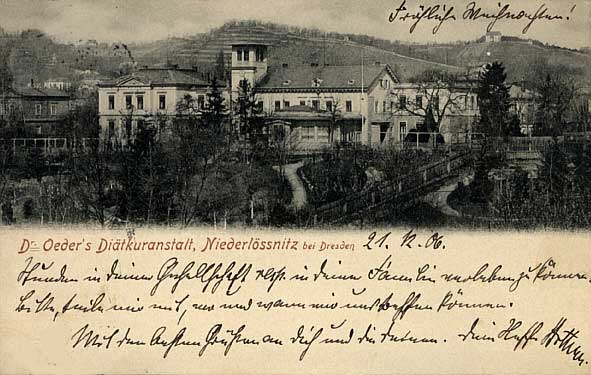 Fröhliche Weihnachten!
Dr. Oeder's Diätkuranstalt, Niederlössnitz bei Dresden 21. 12. 06.
Stunden in Deiner Gesellschaft resp. in Deiner Familie verleben zu können.
Bitte, teile mir mit, wo und wann wir uns treffen können.
Mit den besten Grüßen an Dich und die Deinen. Dein